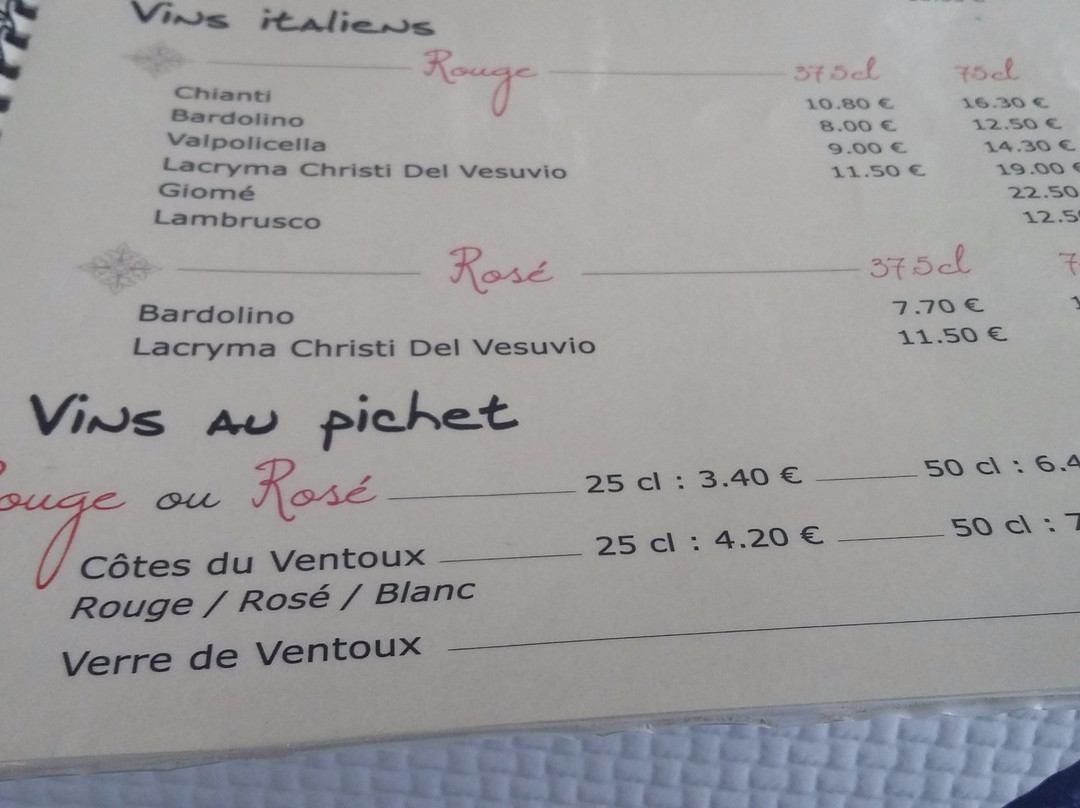 Vins italiens
Rouge 37.5cl 75cl
Chianti 10.80 € 16.30 €
Bardolino 8.00 € 12.50 €
Valpolicella 9.00 € 14.30 €
Lacryma Christi Del Vesuvio 11.50 € 19.00 €
Giomé 22.50
Lambrusco 12.5
Rosé 37.5cl 7
Bardolino 7.70 € 1
Lacryma Christi Del Vesuvio 11.50 €
Vins au pichet
Rouge ou Rosé 25 cl : 3.40 € 50 cl : 6.4
Côtes du Ventoux 25 cl : 4.20 € 50 cl : 7
Rouge / Rosé / Blanc
Verre de Ventoux